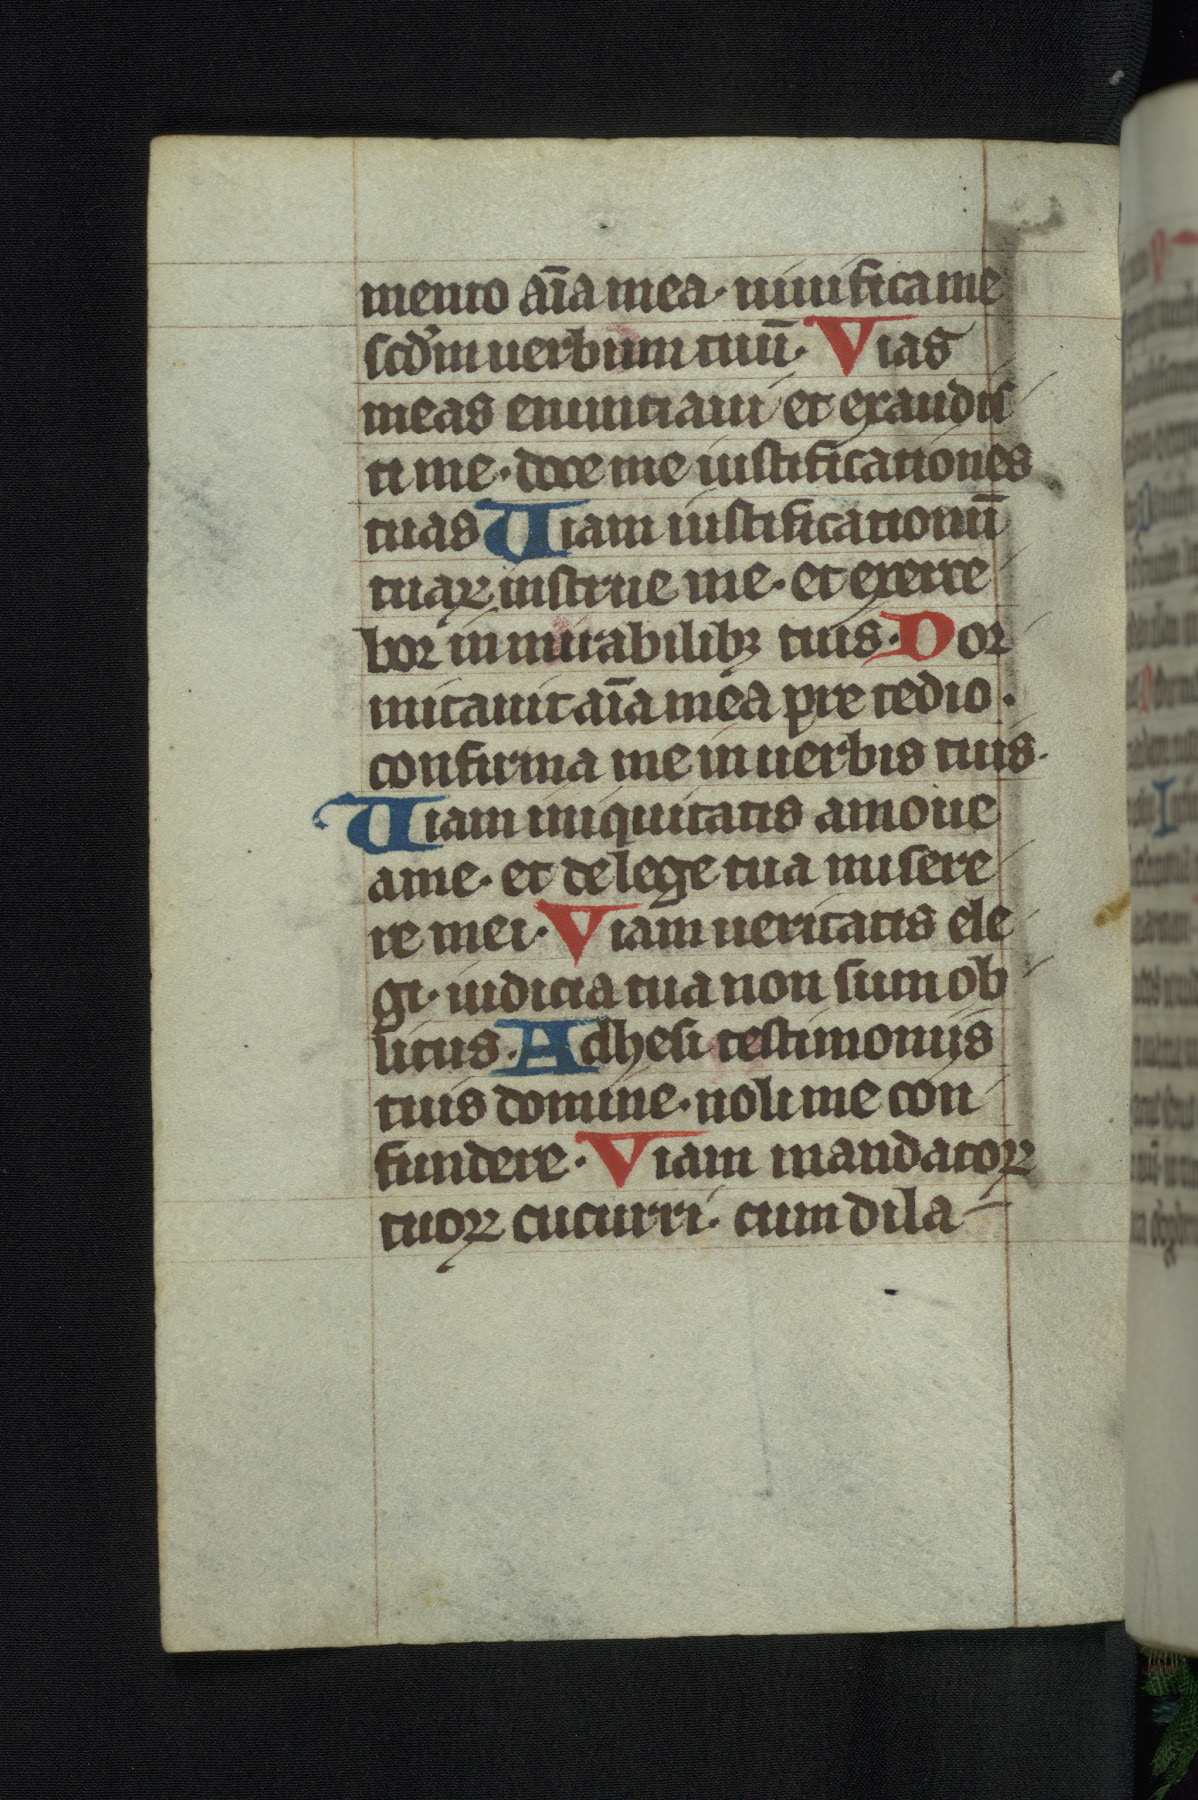 mento aīa mea · uiuifica me
scd̄m uerbum tuū · Vias
meas enuntiaui et exaudis
ti me · doce me iustificationes
tuas Viam iustificationū
tuaꝝ instrue me · et exerce
bor in mirabilibꝫ tuis · Dor
mitauit aīa mea pre tedio ·
confirma me in uerbis tuis ·
Viam iniquitatis amoue
ame · et de lege tua misere
re mei · Viam ueritatis ele
gi · iudicia tua non sum ob
litus · Adhesi testimoniis
tuis domine · noli me con
fundere · Viam mandatoꝝ
tuoꝝ cucurri · cum dila